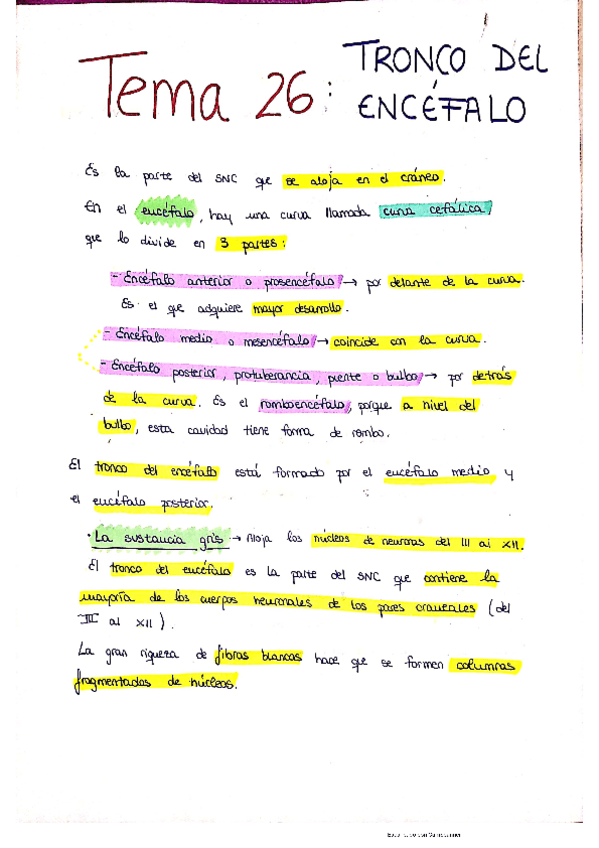 Tema 26: TRONCO DEL
ENCÉFALO
Es la parte del SNC que se aloja en el cráneo.
En el encéfalo, hay una curva llamada curva cefálica,
que lo divide en 3 partes:
- Encéfalo anterior o prosencéfalo → por delante de la curva.
Es el que adquiere mayor desarrollo.
- Encéfalo medio o mesencéfalo → coincide con la curva.
- Encéfalo posterior, protuberancia, puente o bulbo → por detrás
de la curva. Es el romboencéfalo, porque a nivel del
bulbo, esta cavidad tiene forma de rombo.
El tronco del encéfalo está formado por el encéfalo medio y
el encéfalo posterior.
· La sustancia gris → Aloja los núcleos de neuronas del III al XII.
El tronco del encéfalo es la parte del SNC que contiene la
mayoría de los cuerpos neuronales de los pares craneales (del
III al XII).
La gran riqueza de fibras blancas hace que se formen columnas
fragmentadas de núcleos.